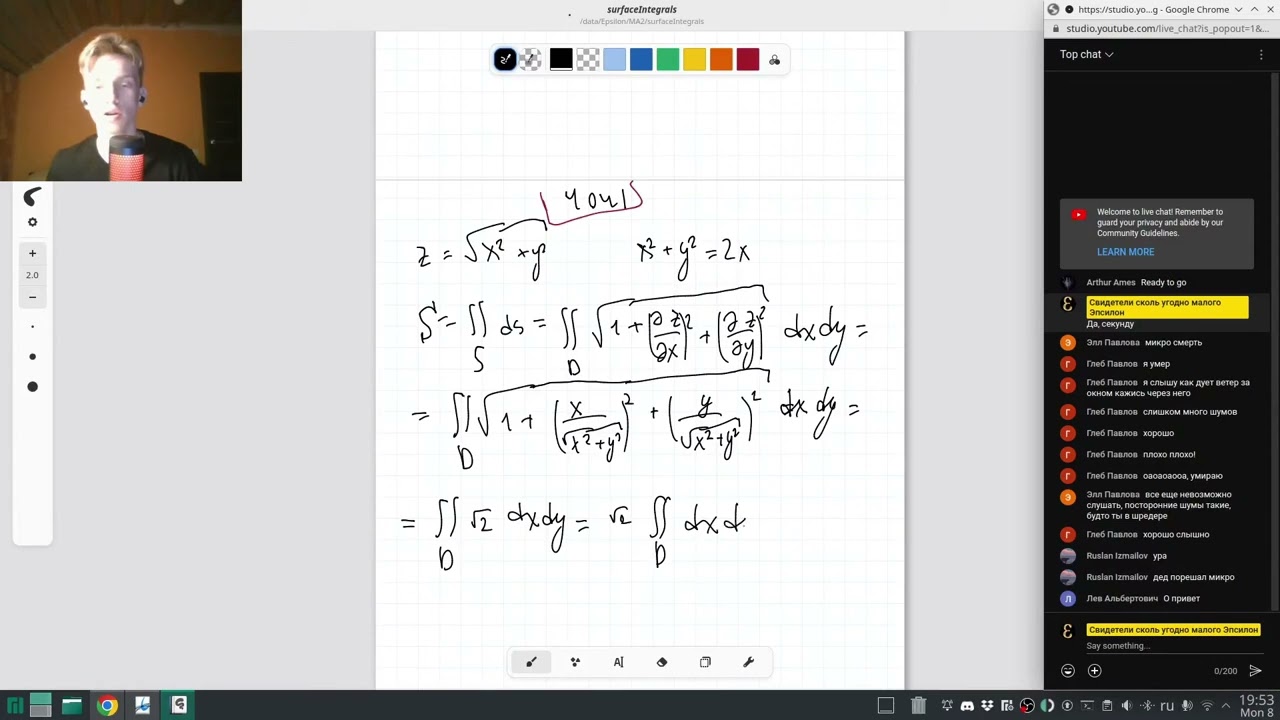 surfaceIntegrals
/data/Epsilon/MA2/surfaceIntegrals
2.0
4041
z = √x² + y² x² + y² = 2x
S = ∬ ds = ∬ √1 + (∂z/∂x)² + (∂z/∂y)² dx dy =
S D
= ∬ √1 + (x/√x² + y²)² + (y/√x² + y²)² dx dy =
D
= ∬ √2 dx dy = √2 ∬ dx d
D D
https://studio.yo...g - Google Chrome
studio.youtube.com/live_chat?is_popout=1&...
Top chat
Welcome to live chat! Remember to
guard your privacy and abide by our
Community Guidelines.
LEARN MORE
Arthur Ames Ready to go
Свидетели сколь угодно малого
Эпсилон
Да, секунду
Элл Павлова микро смерть
Глеб Павлов я умер
Глеб Павлов я слышу как дует ветер за
окном кажись через него
Глеб Павлов слишком много шумов
Глеб Павлов хорошо
Глеб Павлов плохо плохо!
Глеб Павлов оаоаоаооа, умираю
Элл Павлова все еще невозможно
слушать, посторонние шумы такие,
будто ты в шредере
Глеб Павлов хорошо слышно
Ruslan Izmailov ура
Ruslan Izmailov дед порешал микро
Лев Альбертович О привет
Свидетели сколь угодно малого Эпсилон
Say something...
0/200
ru
19:53
Mon 8